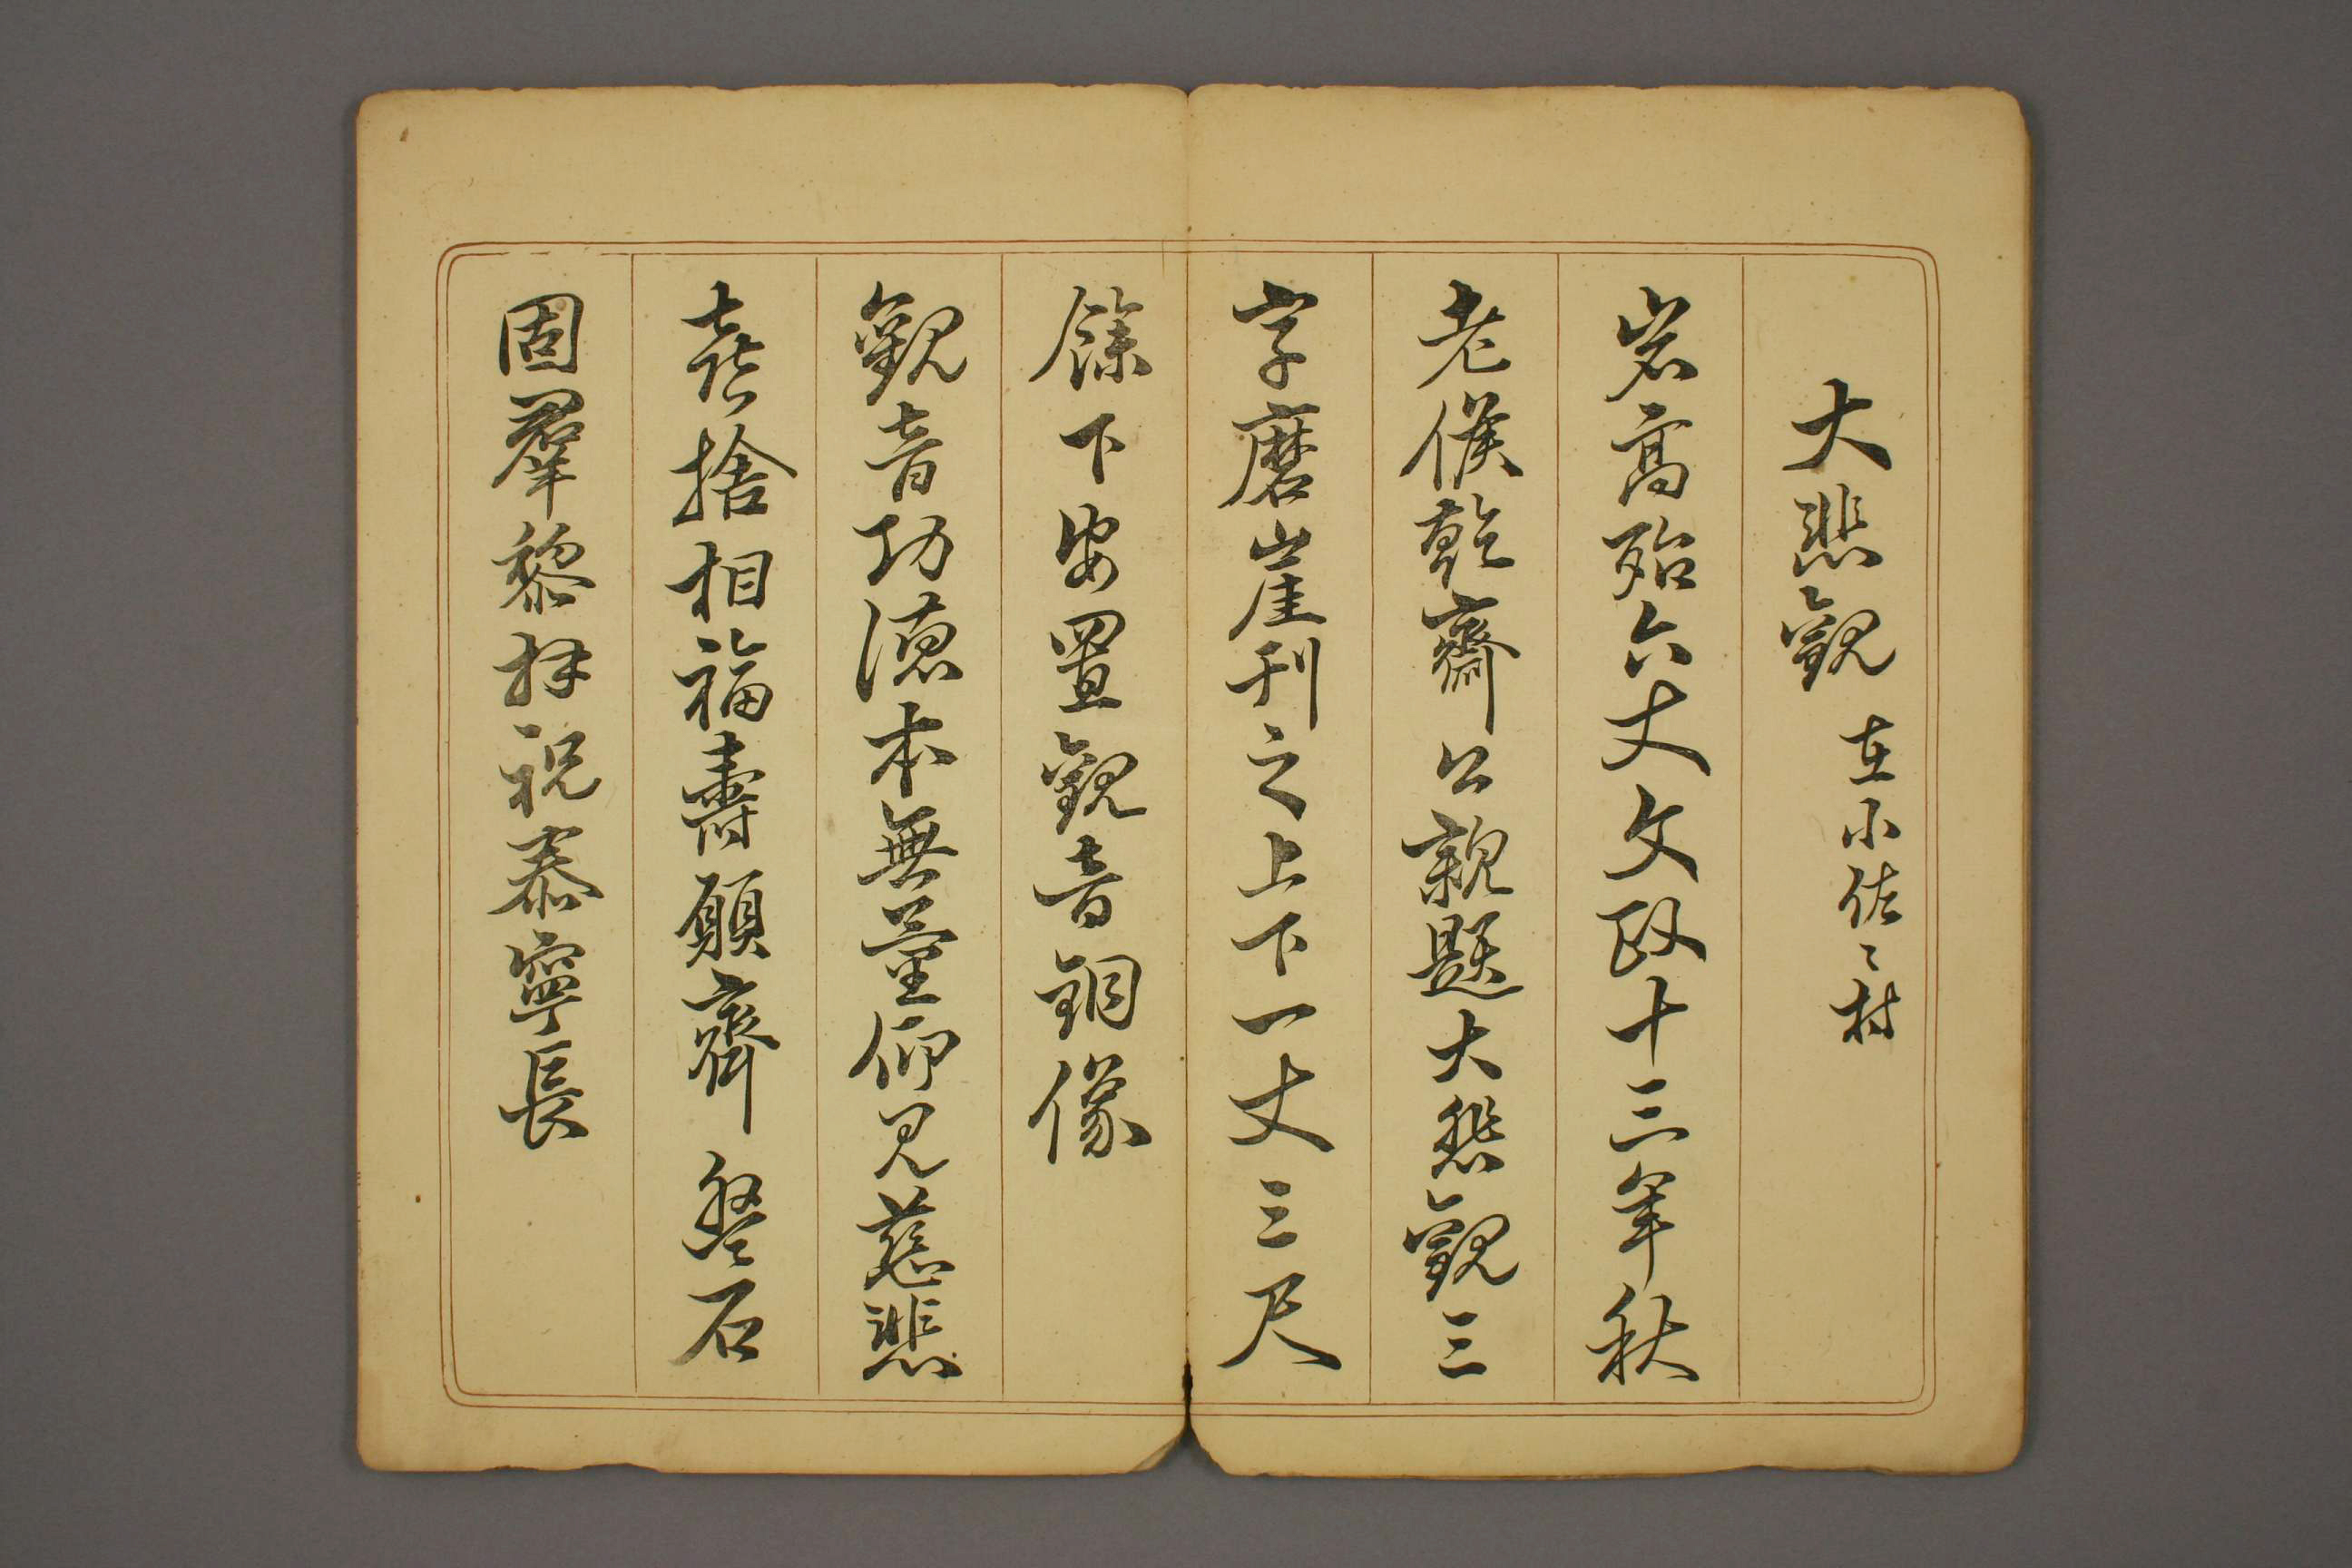 大悲觀 在小佐々村
岩高殆六丈文政十三年秋
老侯乾齋公親題大悲觀三
字磨崖刊之上下一丈三尺
餘下安置觀音銅像
觀音功德本無量仰見慈悲
喜捨相福壽願齊磐石
固羣黎拜祝泰寧長